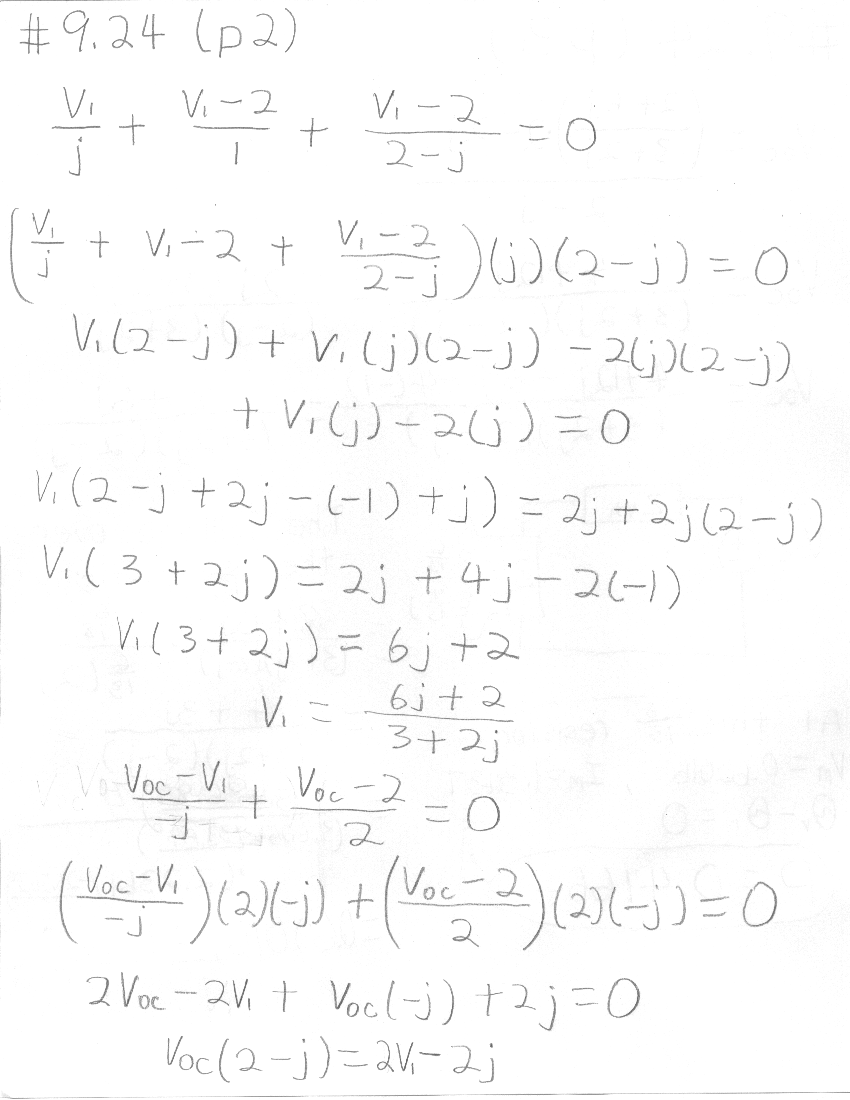 #9.24 (p2)
V₁/j + (V₁-2)/1 + (V₁-2)/(2-j) = 0
(V₁/j + V₁-2 + (V₁-2)/(2-j))(j)(2-j) = 0
V₁(2-j) + V₁(j)(2-j) -2(j)(2-j)
+ V₁(j)-2(j) = 0
V₁(2-j+2j-(-1)+j) = 2j+2j(2-j)
V₁(3+2j) = 2j+4j-2(-1)
V₁(3+2j) = 6j+2
V₁ = (6j+2)/(3+2j)
(Voc-V₁)/(-j) + (Voc-2)/2 = 0
((Voc-V₁)/(-j))(2)(-j) + ((Voc-2)/2)(2)(-j) = 0
2Voc-2V₁ + Voc(-j)+2j=0
Voc(2-j)=2V₁-2j